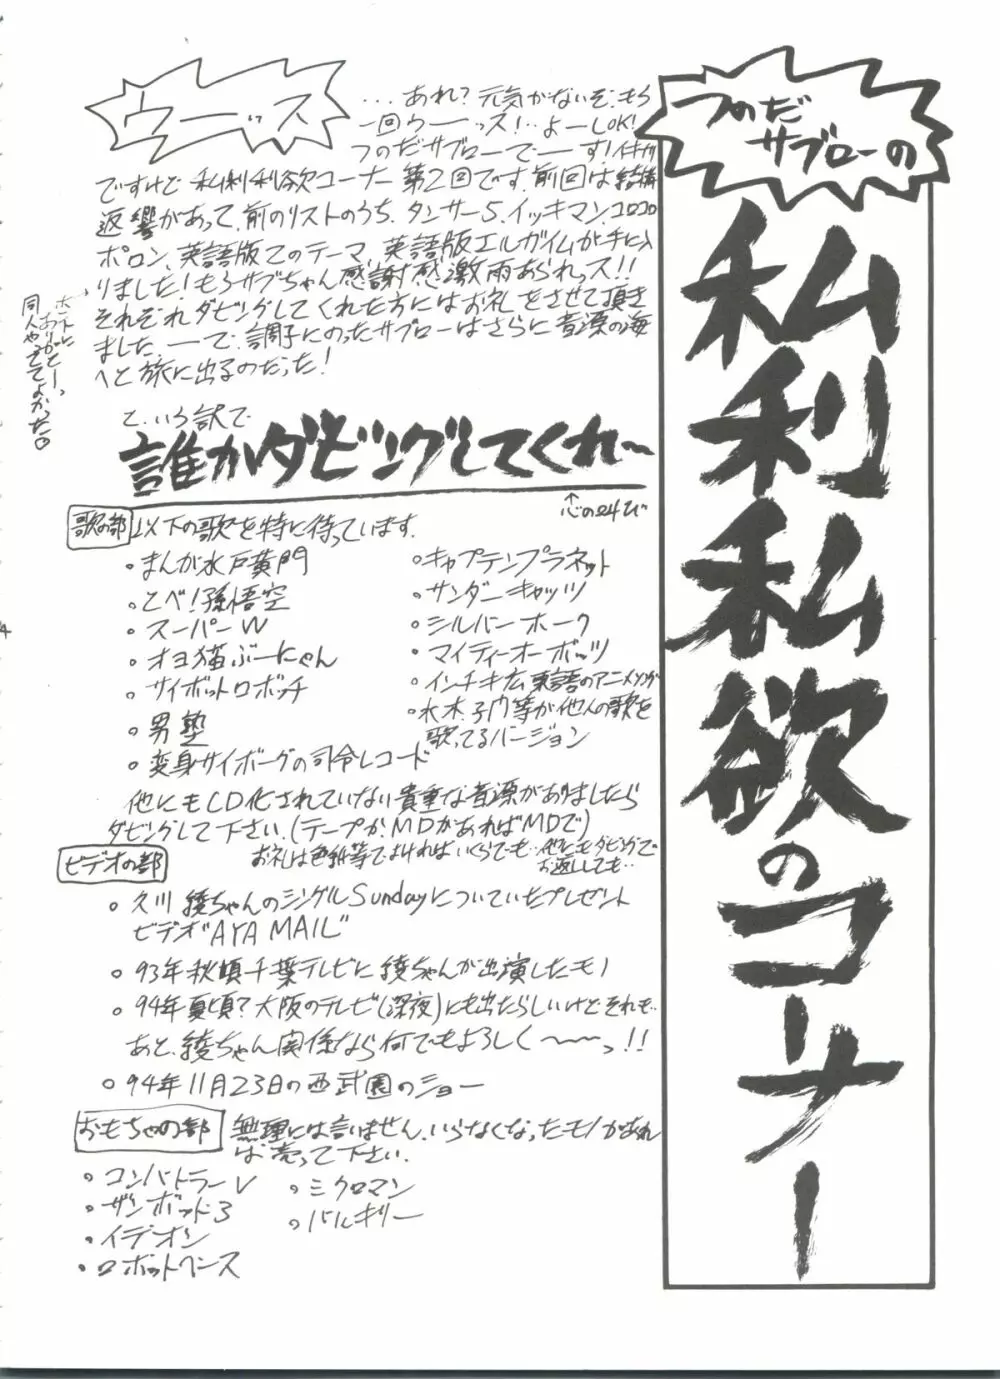 つのだ
サブローの
私利私欲のコーナー
ウーッス
...あれ?元気がないぞ.もう
一回ウーーッス!..よーしOK!
つのだサブローでーーす!イキナリ
ですけど私利私欲コーナー第2回です.前回は結構
返響があって、前のリストのうち、タンサー5、イッキマン、コロコロ
ポロン、英語版Zのテーマ、英語版エルガイムが手に入
りました!もうサブちゃん感謝感激雨あられっス!!
それぞれダビングしてくれた方にはお礼をさせて頂き
ました、ーーで、調子にのったサブローはさらに音源の海
へと旅に出るのだった!
ホントに
ありがとーっ
同人やっててよかった。
と、いう訳で
誰かダビングしてくれ〜
↑心の叫び
歌の部 以下の歌を特に待っています.
・まんが水戸黄門
・とべ!孫悟空
・スーパーW
・オヨ猫ぶーにゃん
・サイボットロボッチ
・男塾
・変身サイボーグの司令レコード
・キャプテンプラネット
・サンダーキャッツ
・シルバーホーク
・マイティーオーボッツ
・インチキ広東語のアニメソング
・水木、子門等が他人の歌を
歌ってるバージョン
他にもCD化されていない貴重な音源がありましたら
ダビングして下さい.(テープか、MDがあればMDで)
お礼は色紙等でよければいくらでも..他にもダビングで
お返ししても..
ビデオの部
。久川綾ちゃんのシングルSundayについていたプレゼント
ビデオ"AYA MAIL"
。93年秋頃千葉テレビに綾ちゃんが出演したモノ
。94年夏頃?大阪のテレビ(深夜)にも出たらしいけどそれも..
あと、綾ちゃん関係なら何でもよろしく〜〜っ!!
。94年11月23日の西武園のショー
おもちゃの部 無理には言いません.いらなくなったモノがあれ
ば売って下さい.
・コンバトラーV
・ザンボット3
・イデオン
・ロボット8ンス
・ミクロマン
・バルキリー